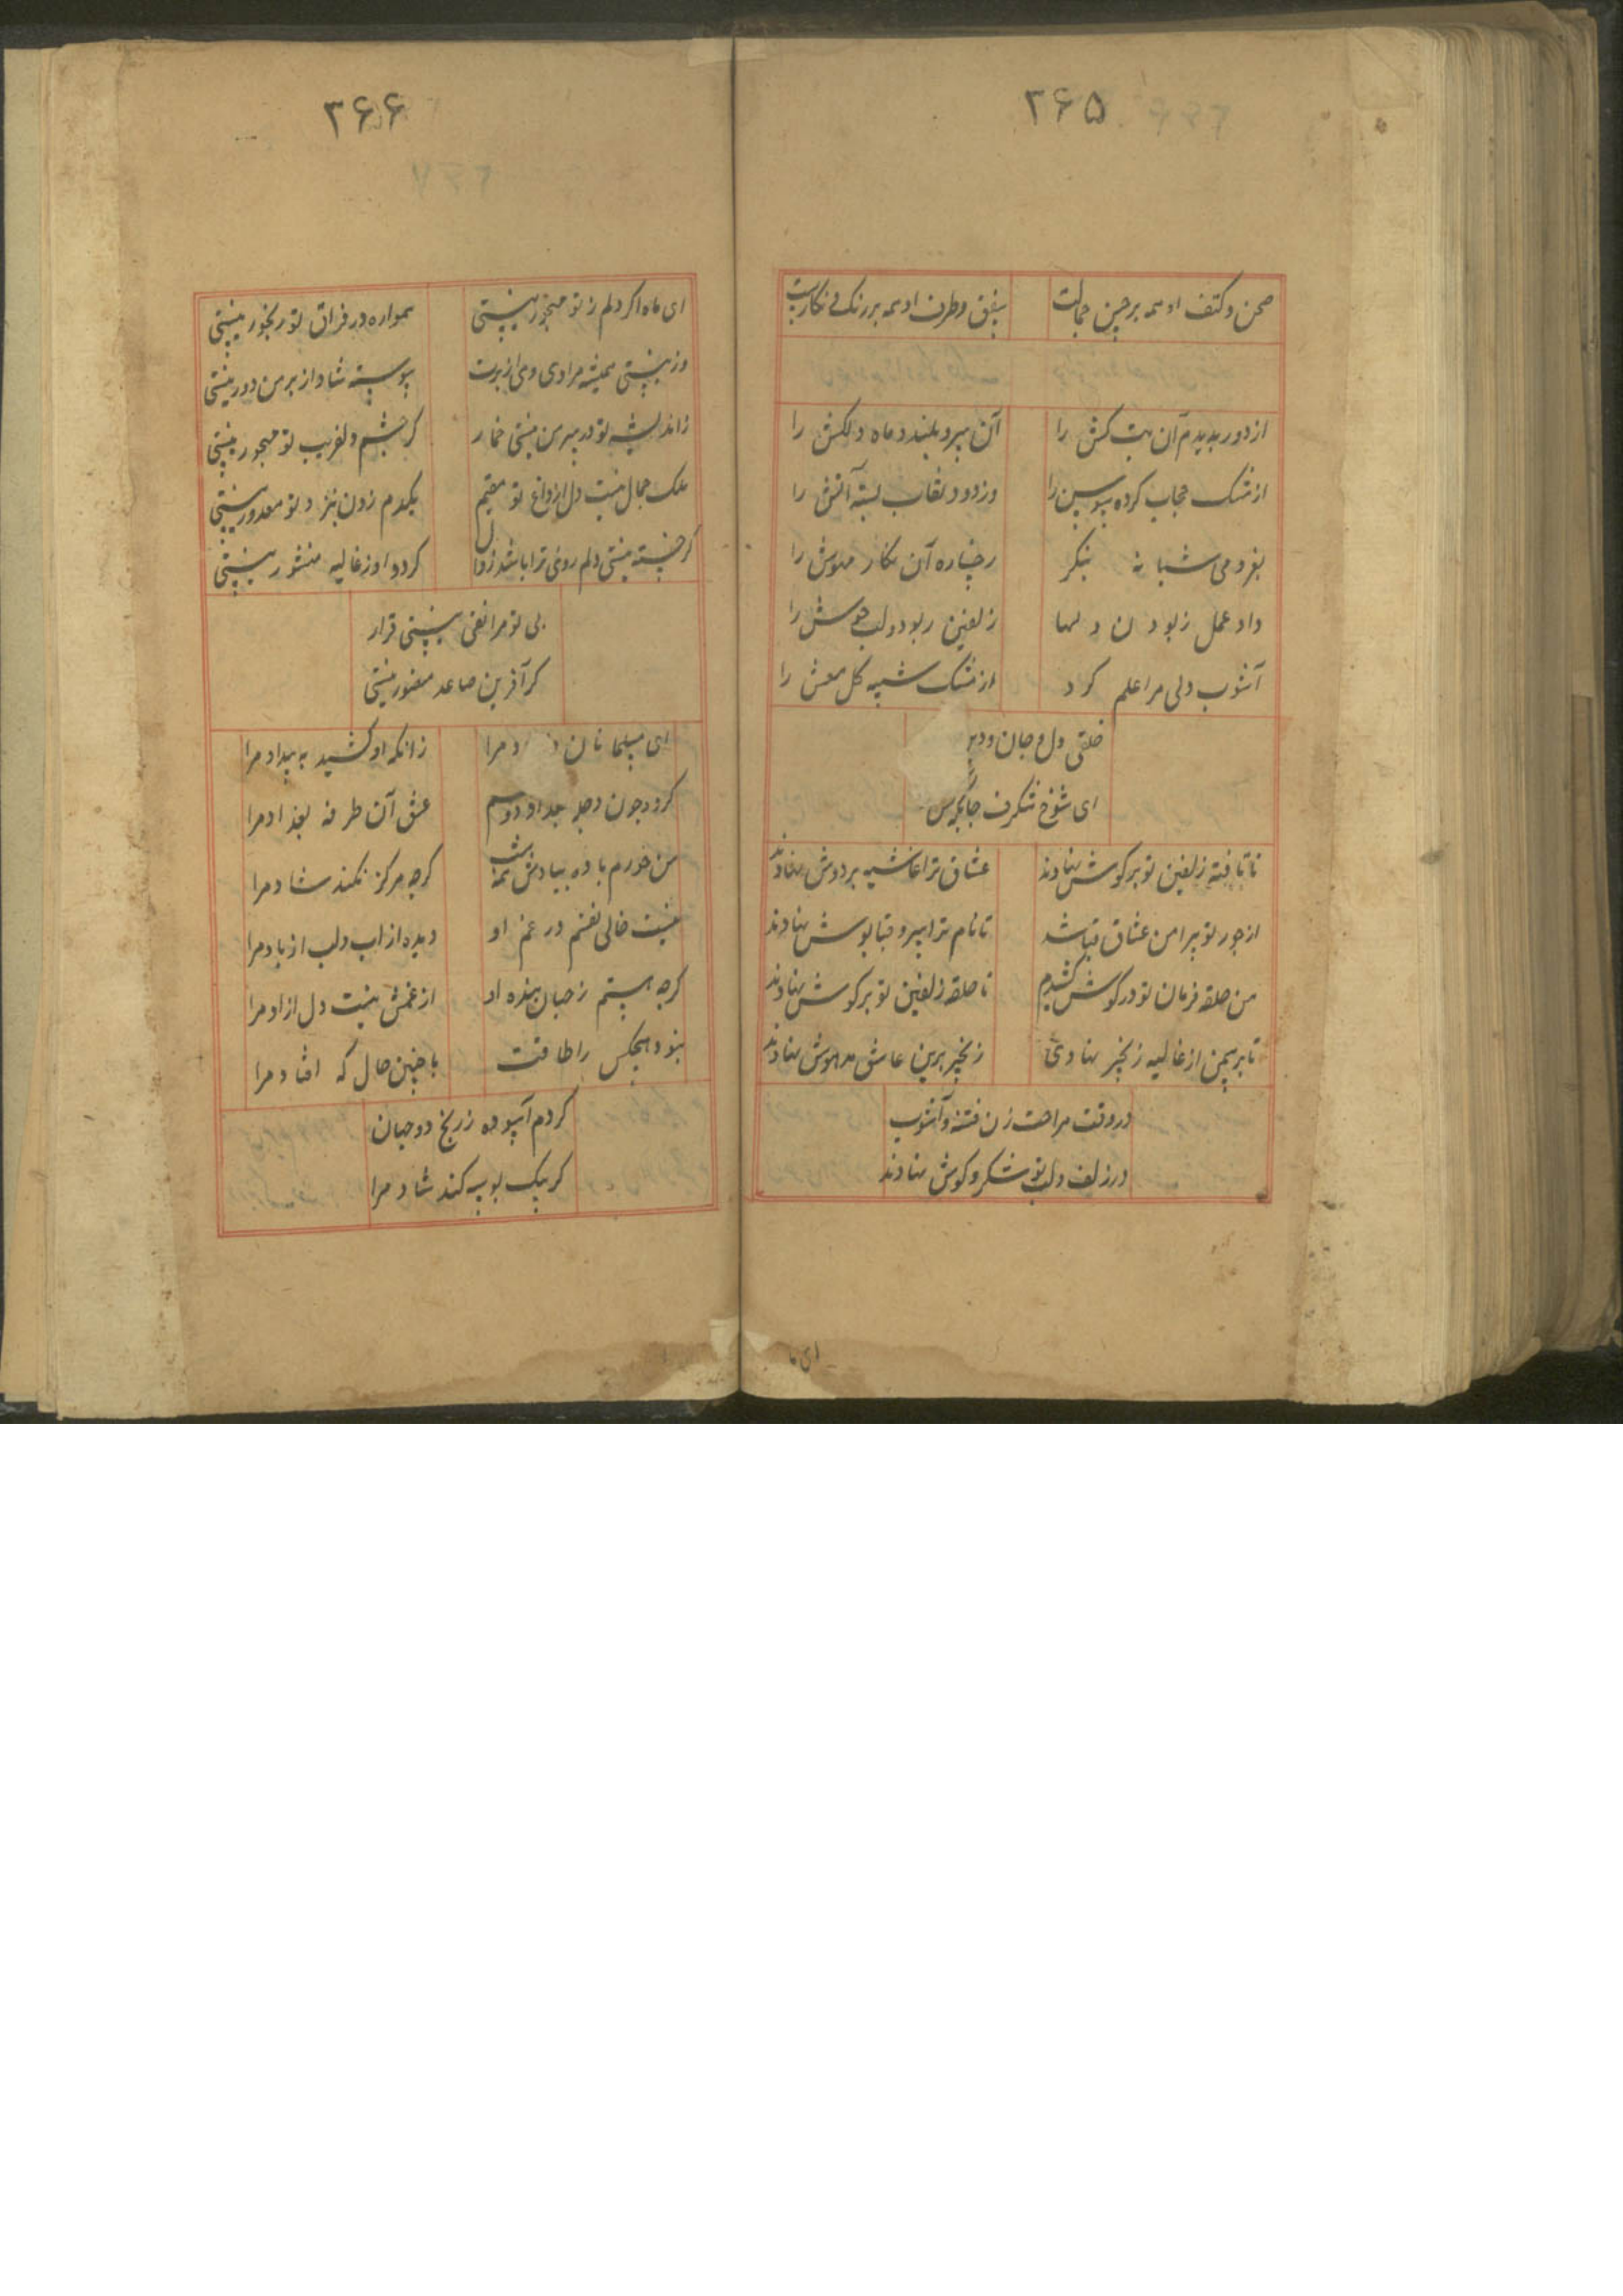 ۲۶۵
صحن و کتف او همه برچین جمالت
سقف و طرف او همه بررنگ نکارست
از دور بدیدم آن بت کش را
آن سرو بلند و ماه دلکش را
از مشک حجاب کرده سوسن را
وز دود نقاب بسته آتش را
بغزومی شبانه بنکر
رخساره آن نکار مهوش را
داد عمل ربودن دلها
زلفین ربود و لب خوش را
آشوب دلی مرا علم کرد
از مشک سیه کل معش را
خلقی دل و جان و دیـ
ای شوخ شکرف جابکی بس
تا تافته زلفین تو بر کوش نهادند
عشاق ترا غاشیه بر دوش نهادند
از جور تو پیرامن عشاق قبا شد
تا نام ترا سرو قبا پوش نهادند
من حلقه فرمان تو در کوش کشیدم
تا حلقه زلفین تو بر کوش نهادند
تا بر سمن از غالیه زنجیر نهادی
زنجیر برین عاشق مدهوش نهادند
در وقت مراحت زن فتنه و آشوب
در زلف و لب تو شکر و کوش نهادند
ای ما
۲۶۶
ای ماه اکر دلم ز تو مهجور نیستی
همواره در فراق تو رنجور نیستی
وز نیستی همیشه مرادی ومی از برت
پیوسته شاد از بر من دور نیستی
ز اندیشه تو در سر من نیستی خمار
کر چشم دلفریب تو مخمور نیستی
ملک جمال نیست دل از داغ تو مقیم
یکدم زدن بنزد تو معذور نیستی
کر خسته نیستی دلم روی ترا باشد زوال
کرد او ز غالیه منشور نیستی
بی تو مرا نفس نیستی قرار
کر آفرین صاعد منصور نیستی
ای مسلمانان ز ... د مرا
زانکه او کشید به بیداد مرا
کرد چون دجله بغداد دو چشم
عشق آن طرفه بغداد مرا
من خورم باده بیادش همه شب
کرچه هرکز نکند شاد مرا
نیست خالی نفسم در غم او
دیده از اب و لب از باد مرا
کرچه هستم ز جهان بنده او
از غمش نیست دل ازاد مرا
نبود هیچکس را طاقت
با چنین حال که افتاد مرا
کردم آسوده ز رنج دو جهان
کر بیک بوسه کند شاد مرا